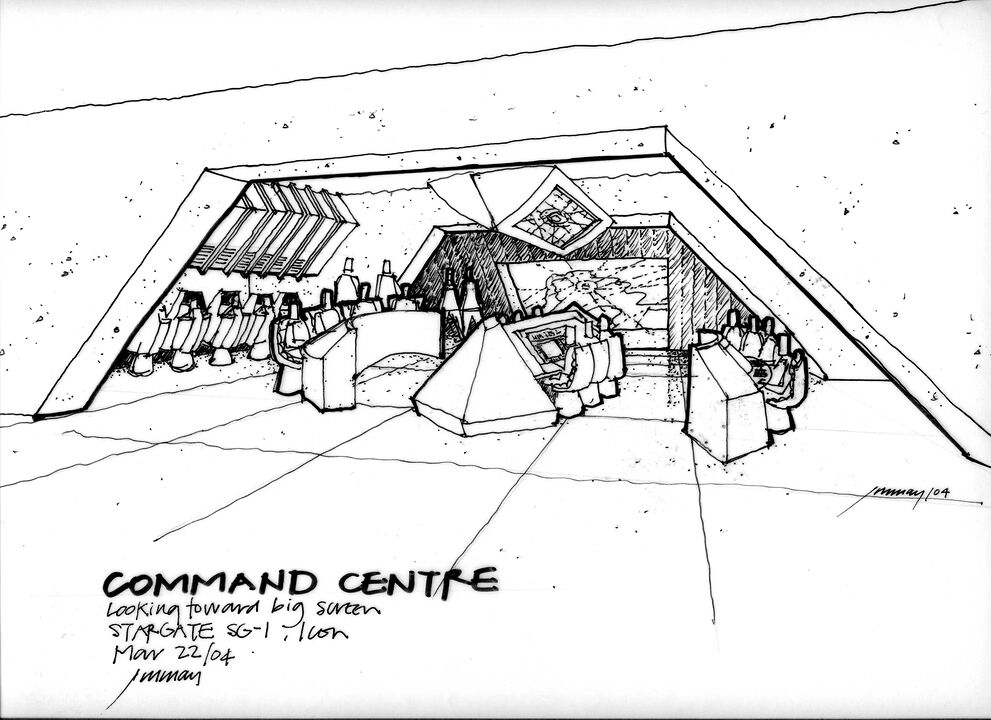 jmmay/04
COMMAND CENTRE
Looking toward big screen
STARGATE SG-1 : Icon
Mar 22/04
jmmay